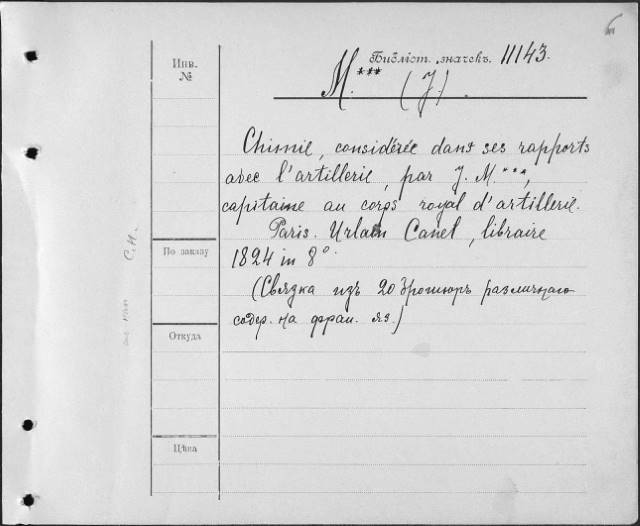 Библіот. значекъ. 11143.
M.*** (J.).
Инв.
№
Chimie, considérée dans ses rapports
avec l'artillerie, par J. M.***,
capitaine au corps royal d'artillerie.
Paris. Urlain Canel, libraire
1824 in 8°
(Связка изъ 20 брошюръ различнаго
содер. на фран. яз.)
По заказу
Откуда
Цѣна
С.Н.